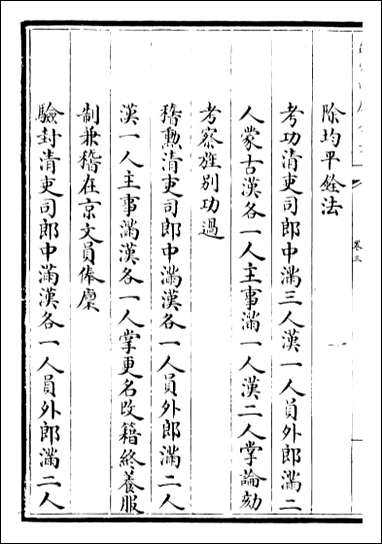 除均平銓法
考功清吏司郎中滿三人漢一人員外郎滿二
人蒙古漢各一人主事滿一人漢二人掌論劾
考察旌別功過
稽勲清吏司郎中滿漢各一人員外郎滿二人
漢一人主事滿漢各一人掌更名改籍終養服
制兼稽在京文員俸廩
驗封清吏司郎中滿漢各一人員外郎滿二人
卷三